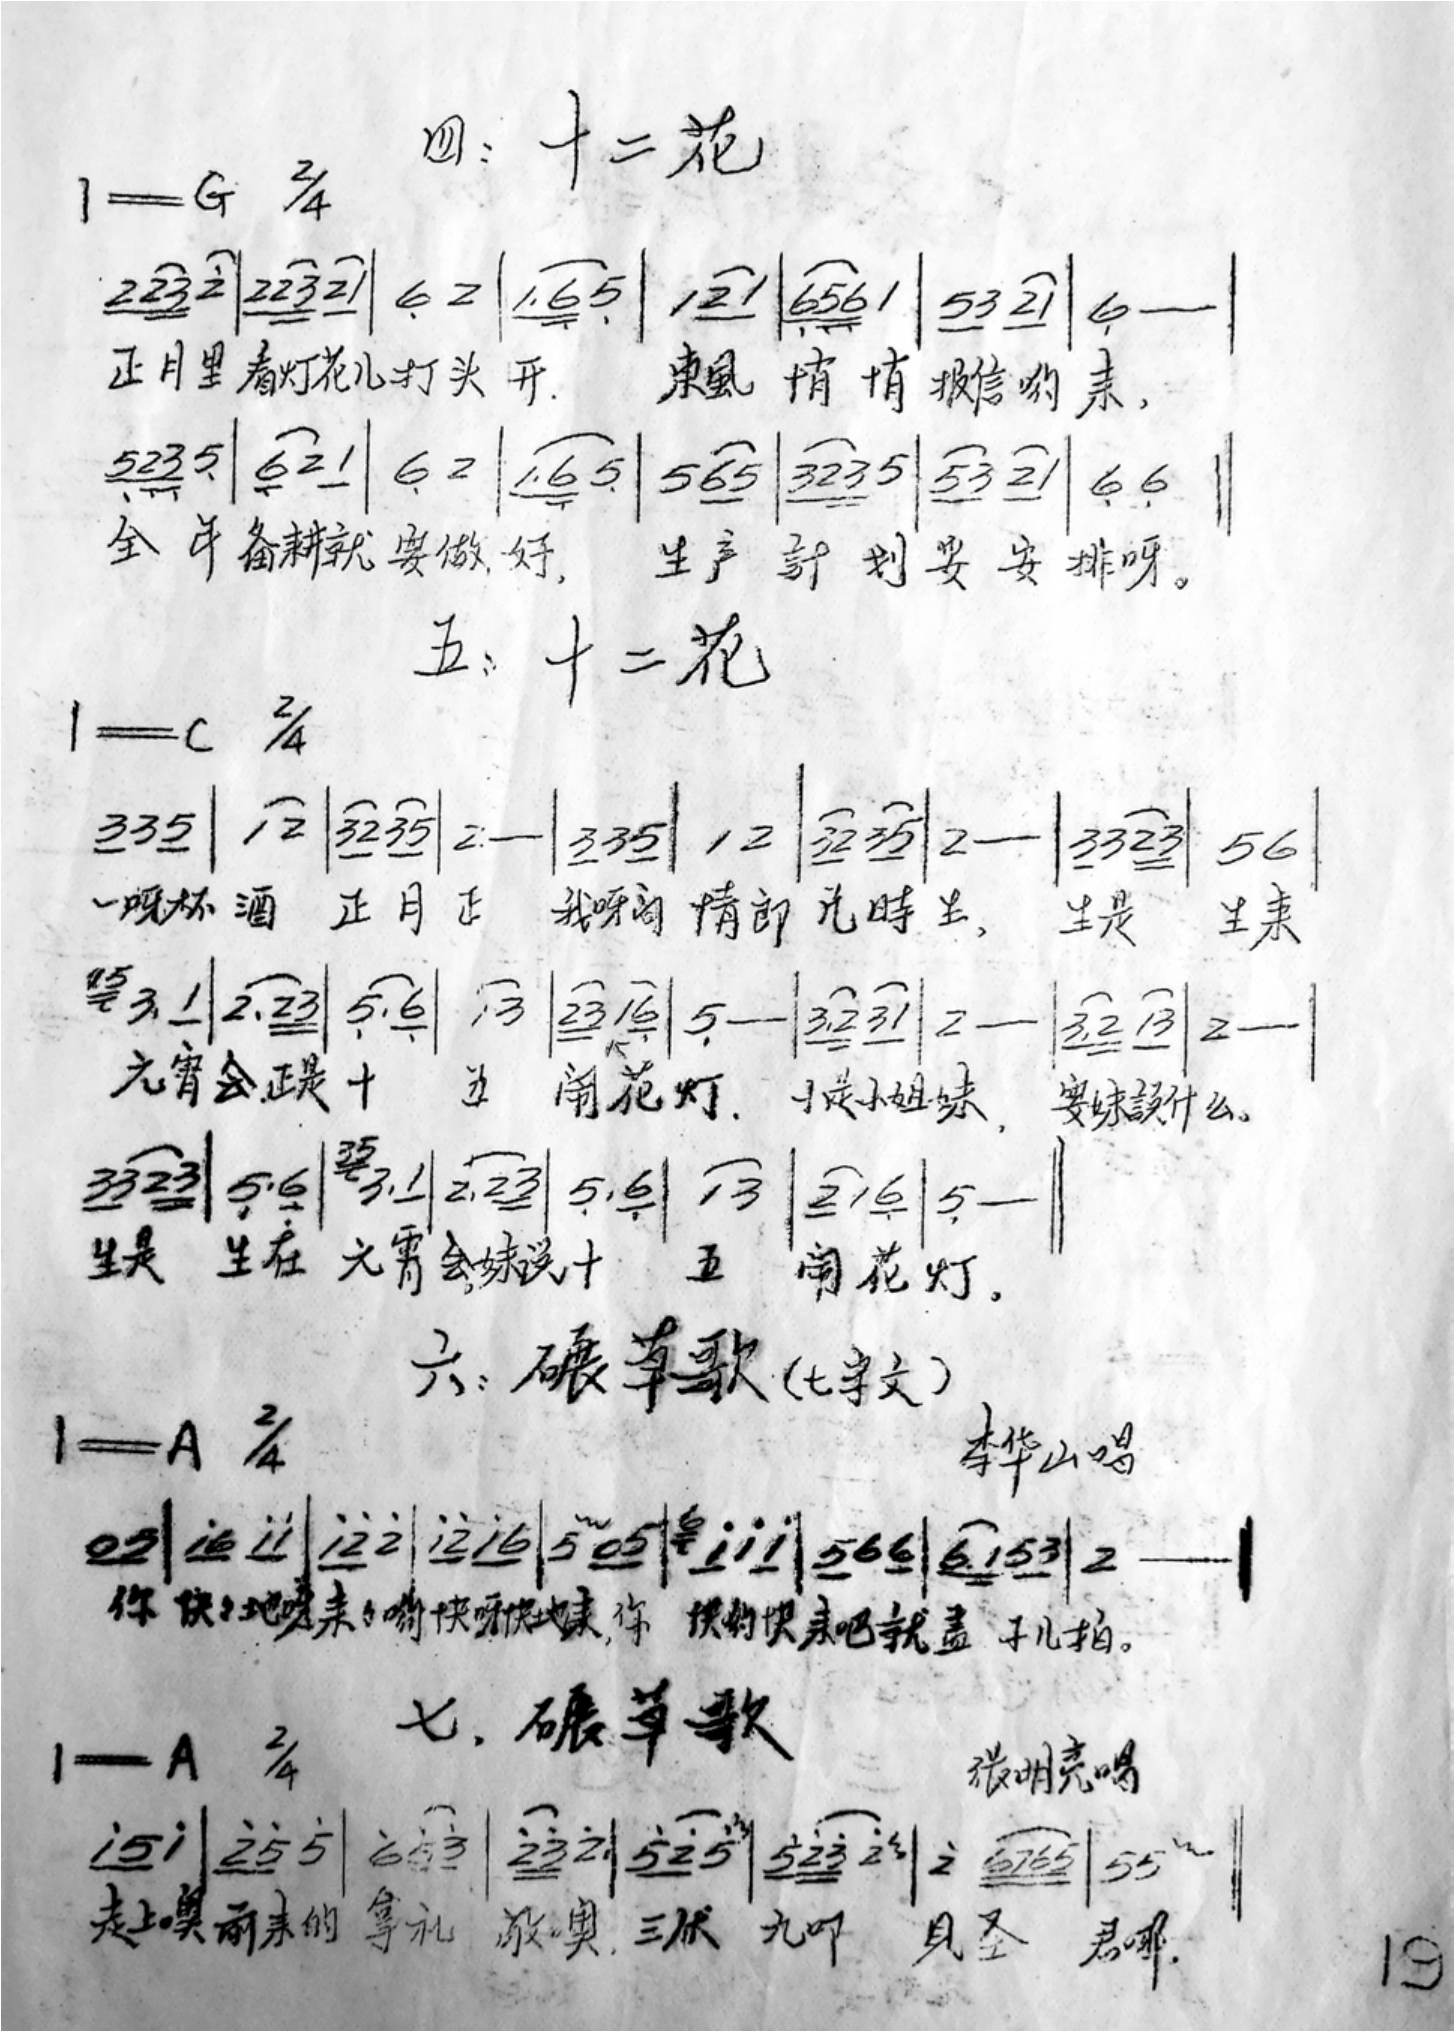 四：十二花
1=G 2/4
2232|22321|6 2|1.65|121|6561|5321|6—|
正月里看灯花儿打头开. 東風悄悄报信哟来,
5235|621|6 2|1.65|565|3235|5321|66‖
全年备耕就要做好, 生产計划要安排呀。
五：十二花
1=C 2/4
335|12|3235|2.—|335|12|3235|2—|3323|56|
一呀杯酒 正月正 我呀的情郎几時生, 生是 生来
3.1|2.23|5.6|13|2316|5—|3.231|2—|3.213|2—|
元宵会.正是十五 闹花灯. 小是小姐妹, 要妹說什么。
3323|5.6|35 3.1|2.23|5.6|13|216|5—‖
生是 生在 元宵会,妹说十五 闹花灯。
六：碾草歌(七字文)
1=A 2/4
李华山唱
05|16 11|122|1216|5 05|6 111|566|6.153|2—|
你快々地呀来々哟快呀快地来,你 快的快来吧就盖子儿拍。
七. 碾草歌
1=A 2/4
張明亮唱
151|255|653|232|525|5232|2 6765|55‖
走上噢前来的拿礼敬噢.三伏九叩 見圣君哪.
19